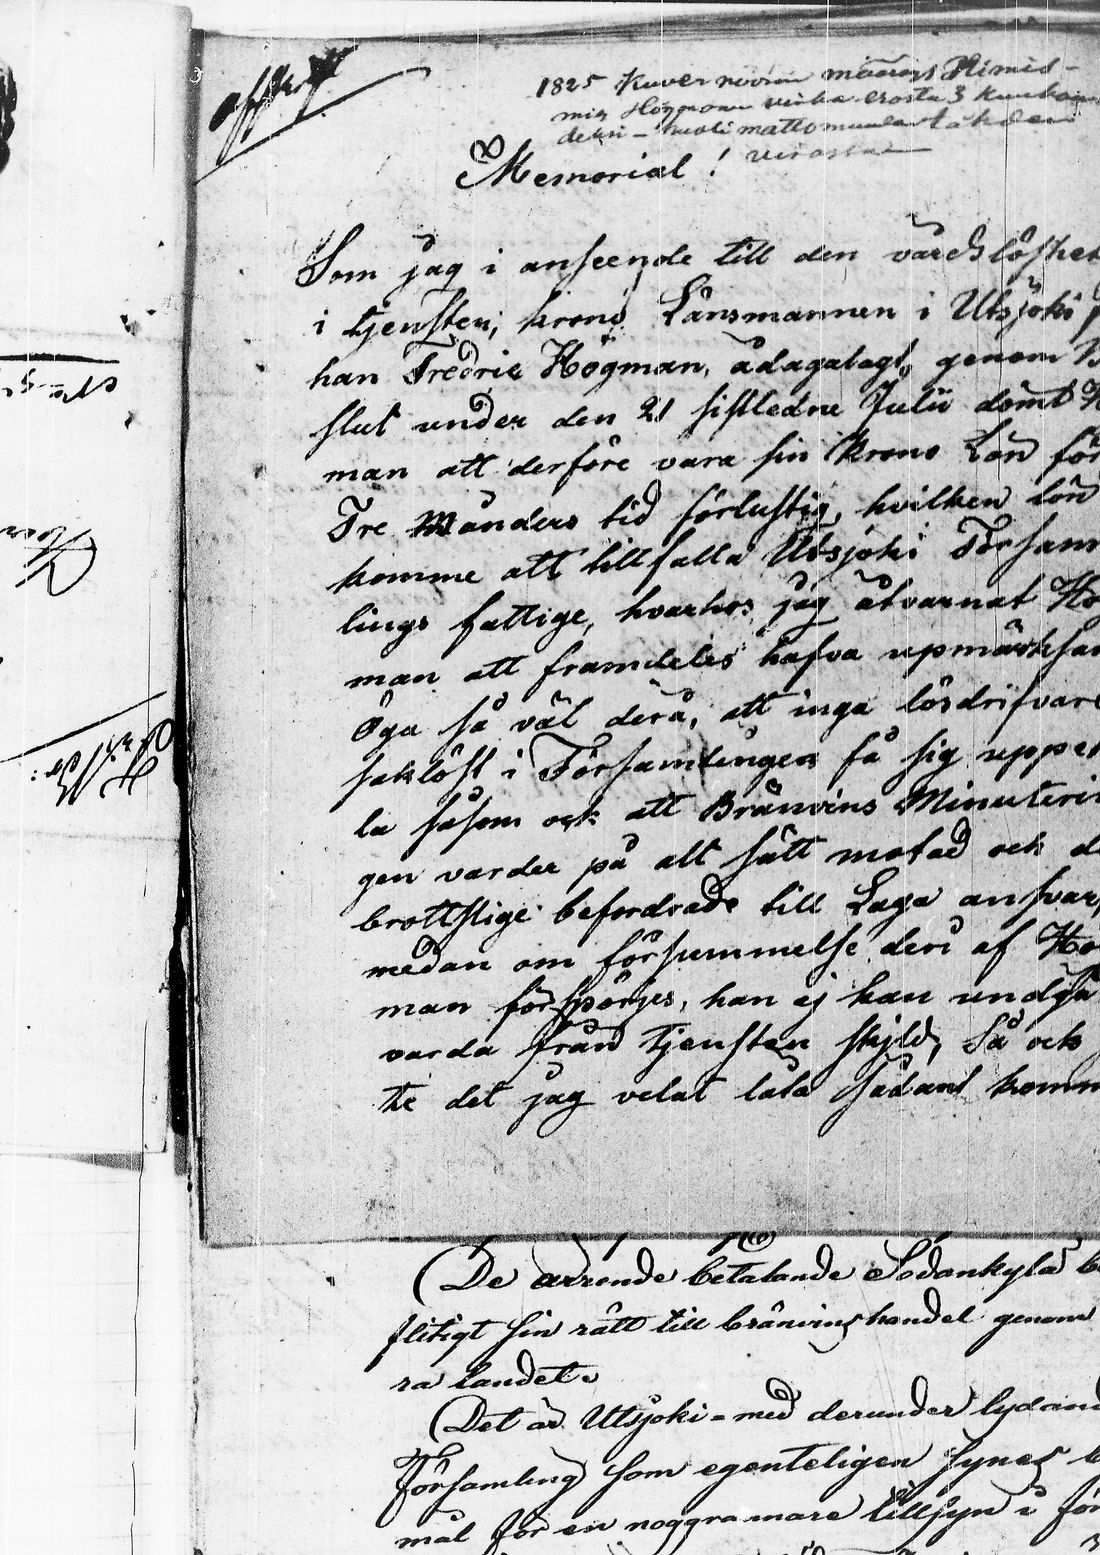 Afskrift
1825 Kuvernöörin määräys Nimis-
mies Högman virka erosta 3 kuukau
deksi - huolimattomuuden tähden
virassa
Memorial!
Som jag i anseende till den vårdslöshet
i tjensten, krono Länsmannen i Utsjoki
han Fredric Högman, ådagalagt, genom
slut under den 21 sistledne Julii dömt
man att derföre vara sin Krono Lön för
Tre Månders tid förlustig, hvilken lön
komme att tillfalla Utsjoki Församm
lings fattige, hvarhos jag åtvarnat Hö
man att framdeles hafva upmärksam
Öga så väl derå, att inga lösdrifvare
saklöst i Församlingen få sig uppe
la såsom ock att Bränvins Minuterin
gen varder på alt sätt motad och de
brottslige befordrade till Laga ansvar,
medan om försummelse deri af Hö
man försporjes, han ej kan undgå
varda från tjensten skild, Så och
te det jag velat låta sådant komm
(De arrende betalande Sodankylä b
flitigt sin rätt till bränvinshandel genom
ra landet.
(Det är Utsjoki - med derunder lydand
Församling som egenteligen synes
mål för en noggrannare tillsyn i för